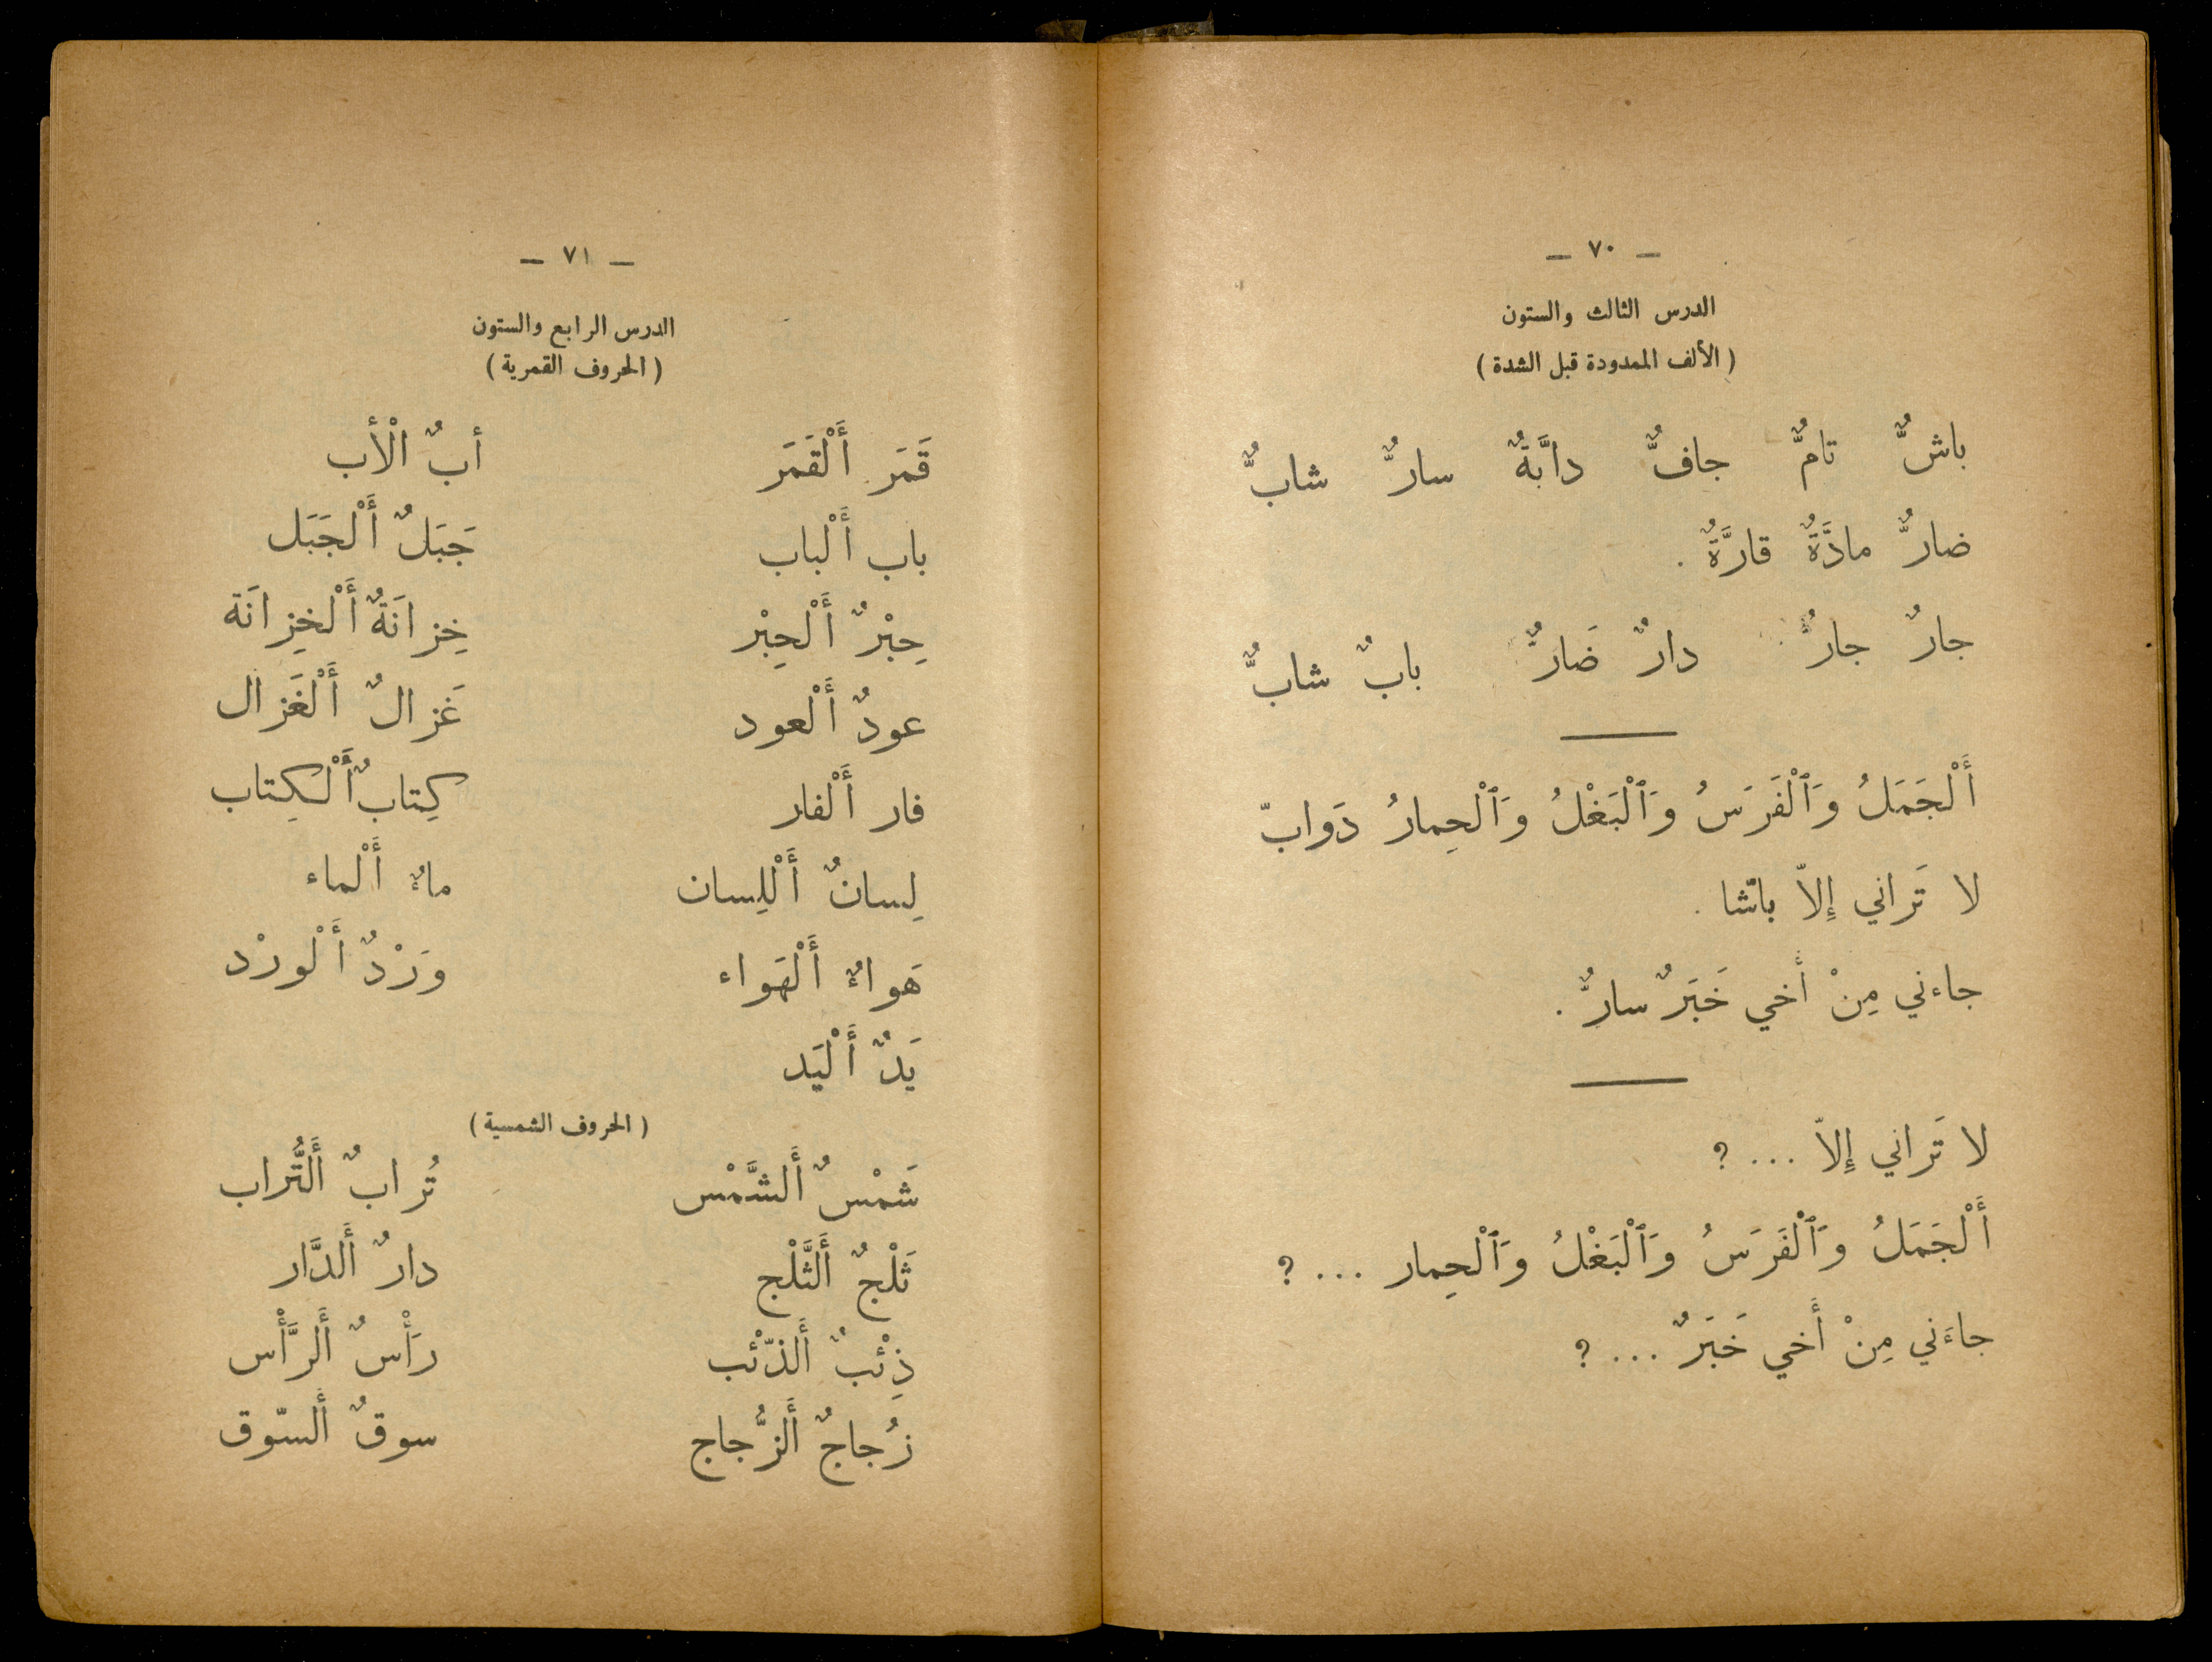 — ٧٠ —
الدرس الثالث والستون
( الألف الممدودة قبل الشدة )
باشٌّ تامٌّ جافٌّ دابَّةٌ سارٌّ شابٌّ
ضارٌّ مادَّةٌ قارَّةٌ .
جارٌ جارٌّ دارٌ ضَارٌّ بابٌ شابٌّ
أَلْجَمَلُ وَٱلْفَرَسُ وَٱلْبَغْلُ وَٱلْحِمارُ دَوابّ
لا تَراني إِلاّ باشّا .
جاءني مِنْ أَخي خَبَرٌ سارٌّ .
لا تَراني إِلاّ ... ؟
أَلْجَمَلُ وَٱلْفَرَسُ وَٱلْبَغْلُ وَٱلْحِمار ... ؟
جاءَني مِنْ أَخي خَبَرٌ ... ؟
— ٧١ —
الدرس الرابع والستون
( الحروف القمرية )
قَمَر أَلْقَمَر أبٌ الْأب
باب أَلْباب جَبَلٌ أَلْجَبَل
حِبْرٌ أَلْحِبْر خِزانَةٌ أَلْخِزانَة
عودٌ أَلْعود غَزالٌ أَلْغَزال
فار أَلْفار كِتابٌ أَلْكِتاب
لِسانٌ أَلْلِسان ماءٌ أَلْماء
هَواءٌ أَلْهَواء وَرْدٌ أَلْورْد
يَدٌ أَلْيَد
( الحروف الشمسية )
شَمْسٌ أَلشَّمْس تُرابٌ أَلتُّراب
ثَلْجٌ أَلثَّلْج دارٌ أَلدَّار
ذِئْبٌ أَلذّئْب رَأْسٌ أَلرَّأْس
زُجاجٌ أَلزُّجاج سوقٌ أَلسّوق